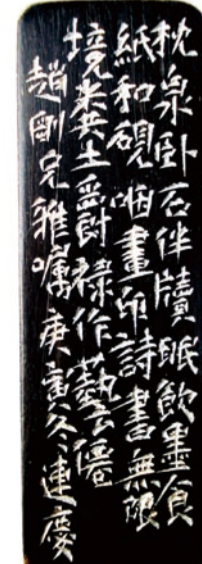 枕泉卧石伴牘眠飲墨食
紙和硯咽畫印詩書無限
境糞土爵祿作藝僊
趙剛兄雅囑庚寅冬連慶